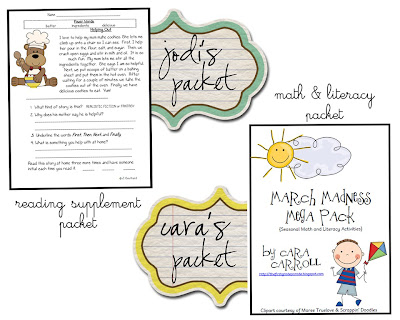 Focus Words
butter ingredients delicious
Helping Out
I love to help my mom make cookies. She lets me
climb up onto a chair so I can see. First, I help
her pour in the flour, salt, and sugar. Then we
crack open eggs and stir in milk and oil. It is so
much fun. My mom lets me stir all the
ingredients together. She says I am so helpful.
Next, we put scoops of batter on a baking
sheet and put them in the hot oven. After
waiting for a couple of minutes we take the
cookies out of the oven. Finally we have
delicious cookies to eat. Yum!
1. What kind of story is this? REALISTIC FICTION or FANTASY
2. Why does her mother say he is helpful?
3. Underline the words First, Then, Next, and Finally.
4. What is something you help with at home?
Read this story at home three more times and have someone
initial each time you read it.
jodi's
packet
math & literacy
packet
reading supplement
packet
cara's
packet
MARCH MADNESS
MEGA PACK
(Seasonal Math and Literacy Activities)
by CARA
CARROLL
Clipart courtesy of Maree Truelove & Scrappin' Doodles